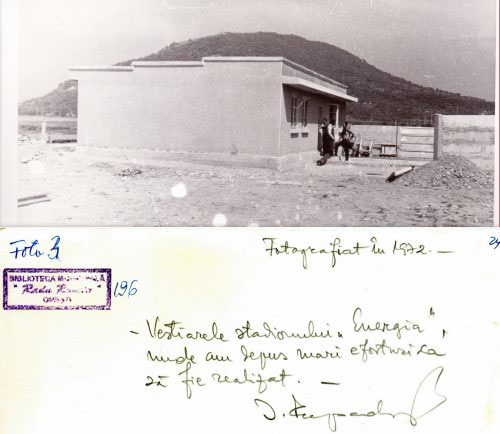 Foto 3
Fotografiat în 1972. —
24
BIBLIOTECA
196
- Vestiarele stadionului „Energia",
unde am depus mari eforturi ca
să fie realizat. —